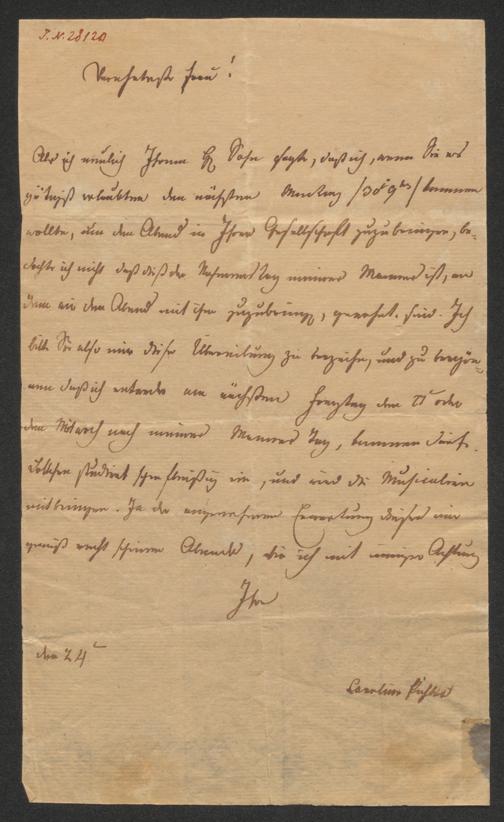 I.N. 28120
Verehrteste Frau!
Als ich neulich Ihrem H. Sohn sagte, daß ich, wenn Sie es
gütigst erlaubten den nächsten Montag / 30t 9br / kommen
wollte, um den Abend in Ihrer Gesellschaft zuzubringen, be-
dachte ich nicht daß dieß der Nahmenstag meines Mannes ist, an
dem wir den Abend mit ihm zuzubringen, gewohnt sind. Ich
bitte Sie also mir diese Übereilung zu verzeihen, und zu vergön-
nen daß ich entweder am nächsten Freytag den oder
den Mittwoch nach meines Mannes Tag, kommen dürfe.
Lottchen studirt schon fleißig ein, und wird die Musicalien
mitbringen. In der angenehmen Erwartung dieses mir
gewiß recht schönen Abends, bin ich mit inniger Achtung
Ihre
den 24t
Caroline Pichler